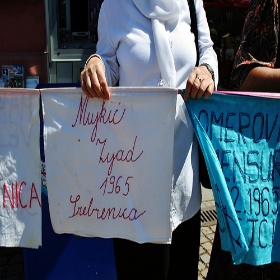 NICA
Mujkić
Zijad
1965
Srebrenica
OMEROV
ENSUR
.2.1965